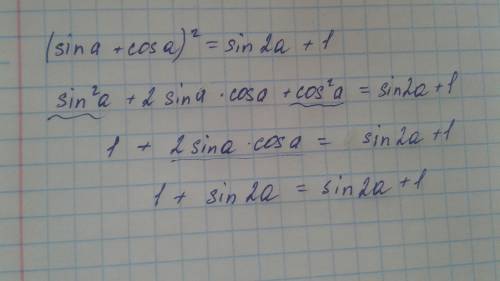 (sin a + cos a)² = sin 2a + 1
sin²a + 2 sin a · cos a + cos²a = sin 2a + 1
1 + 2 sin a · cos a = sin 2a + 1
1 + sin 2a = sin 2a + 1